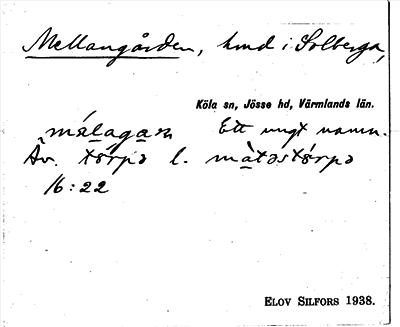 Mellangården, hmd i Solberga,
Köla sn, Jösse hd, Värmlands län.
málagaɴ Ett ungt namn.
Äv. tɵ́rpə l. màtəstɵ́rpə
16:22
ELOV SILFORS 1938.